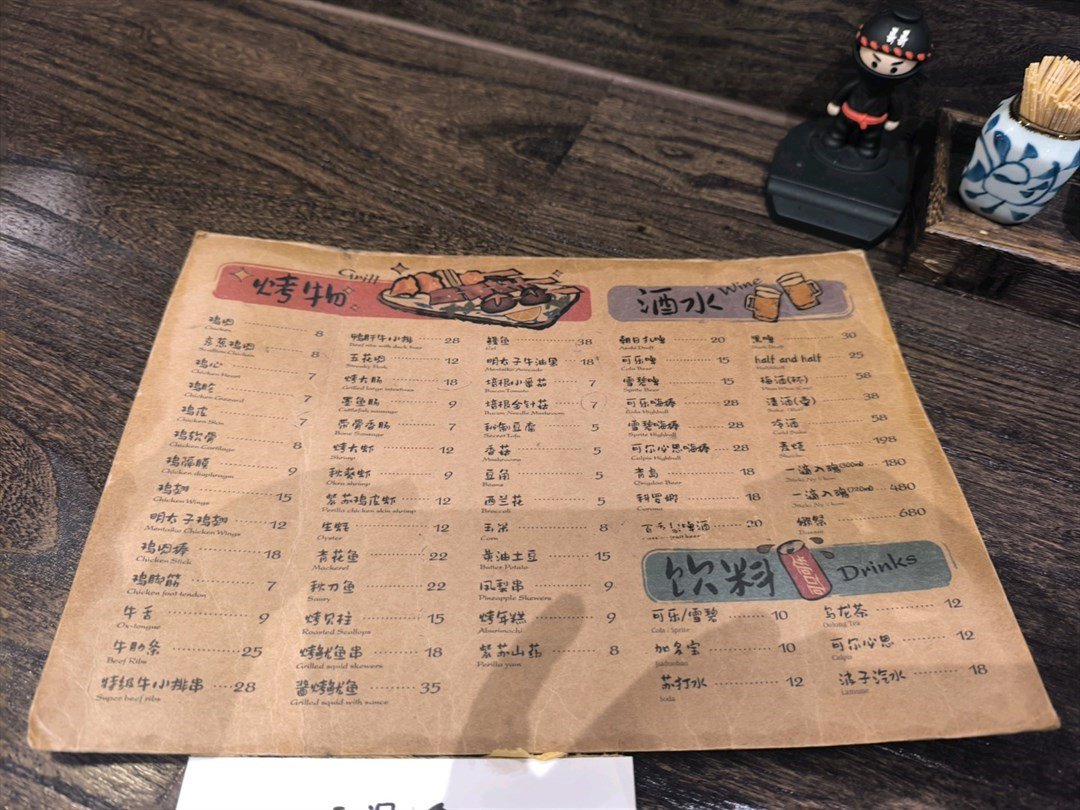 烤物 Grill
鸡肉 8
Chicken
京葱鸡肉 8
Scallion Chicken
鸡心 7
Chicken Heart
鸡胗 7
Chicken Gizzard
鸡皮 7
Chicken Skin
鸡软骨 9
Chicken Cartilage
鸡隔膜 9
Chicken diaphragm
鸡翅 15
Chicken Wings
明太子鸡翅 12
Mentaiko Chicken Wings
鸡肉棒 18
Chicken Stick
鸡脚筋 7
Chicken foot tendon
牛舌 9
Ox-tongue
牛肋条 25
Beef Ribs
特级牛小排串 28
Super beef ribs
鸭肝牛小排 28
五花肉 12
Streaky Pork
烤大肠 18
Grilled large intestines
墨鱼肠 9
Cuttlefish sausage
带骨香肠 7
Bone Sausage
烤大虾 12
Shrimp
秋葵虾 9
Okra shrimp
紫苏鸡皮虾 12
Perilla chicken skin shrimp
生蚝 12
Oyster
青花鱼 22
Mackerel
秋刀鱼 22
Saury
烤贝柱 15
Roasted Scallops
烤鱿鱼串 18
Grilled squid skewers
酱烤鱿鱼 35
Grilled squid with sauce
鳗鱼 38
Eel
明太子牛油果 18
Mentaiko Avocado
培根小番茄 7
Bacon Tomato
培根金针菇 7
Bacon Needle Mushroom
秘制豆腐 5
Secret Tofu
香菇 5
Mushroom
豆角 5
Beans
西兰花 5
Broccoli
玉米 8
Corn
黄油土豆 15
Butter Potato
凤梨串 9
Pineapple Skewers
烤年糕 9
Aburimochi
紫苏山药 8
Perilla yam
酒水 Wine
朝日扎啤 20
Asahi Draft
可乐啤 15
Cola Beer
雪碧啤 15
Sprite Beer
可乐嗨棒 28
Cola Highball
雪碧嗨棒 28
Sprite Highball
可尔必思嗨棒 28
Calpis Highball
青岛 18
Qingdao Beer
科罗娜 18
Corona
啤酒 20
黑啤 30
Dark Draft
half and half 25
梅酒(杯) 58
清酒(壶) 38
冷酒 58
麦烧 198
一滴入魂(300ml) 180
一滴入魂(720ml) 480
獭祭 680
饮料 可口可乐 Drinks
可乐/雪碧 10
Cola / Sprite
加多宝 10
Jiaduobao
苏打水 12
Soda
乌龙茶 12
Oolong Tea
可尔必思 12
Calpis
波子汽水 18